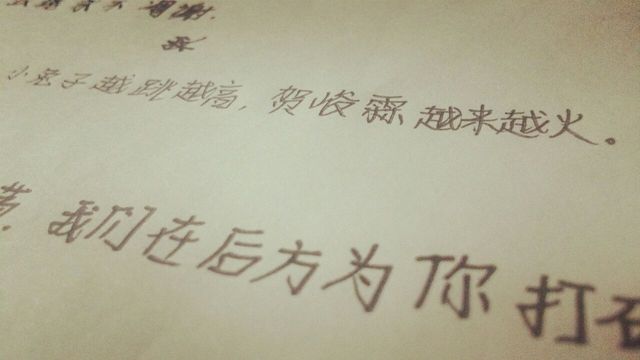 谢.
小兔子越跳越高,贺峻霖越来越火。
我们在后方为你打